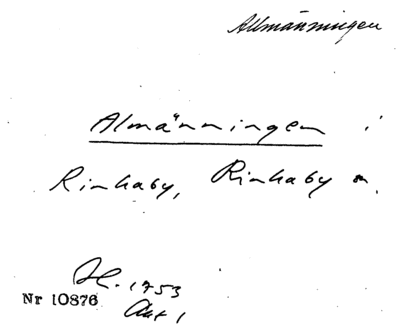 Allmänningen
Almänningen i
Rinkaby, Rinkaby sn.
H. 1753
Nr 10876
Akt 1